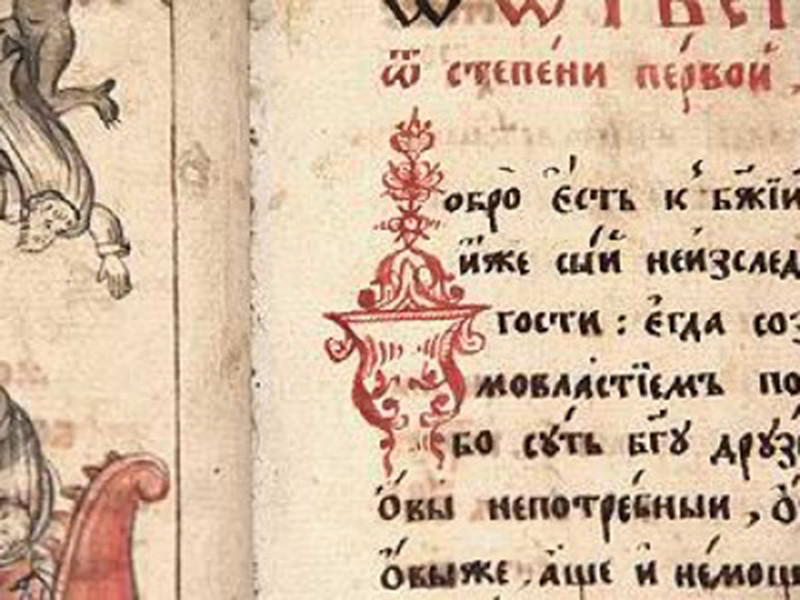 ѿ степе́ни пе́рвой
обро̀ є҆́сть к҆ бж҃їи
и҆́же сы́й неи҆зслед
гости : є҆гда соз
мовластїемъ по
бо су́ть бг҃у дру́зї
о҆́вы непотре́бныи , о҆́
о҆́выже . а҆́ще и҆ не́мощ